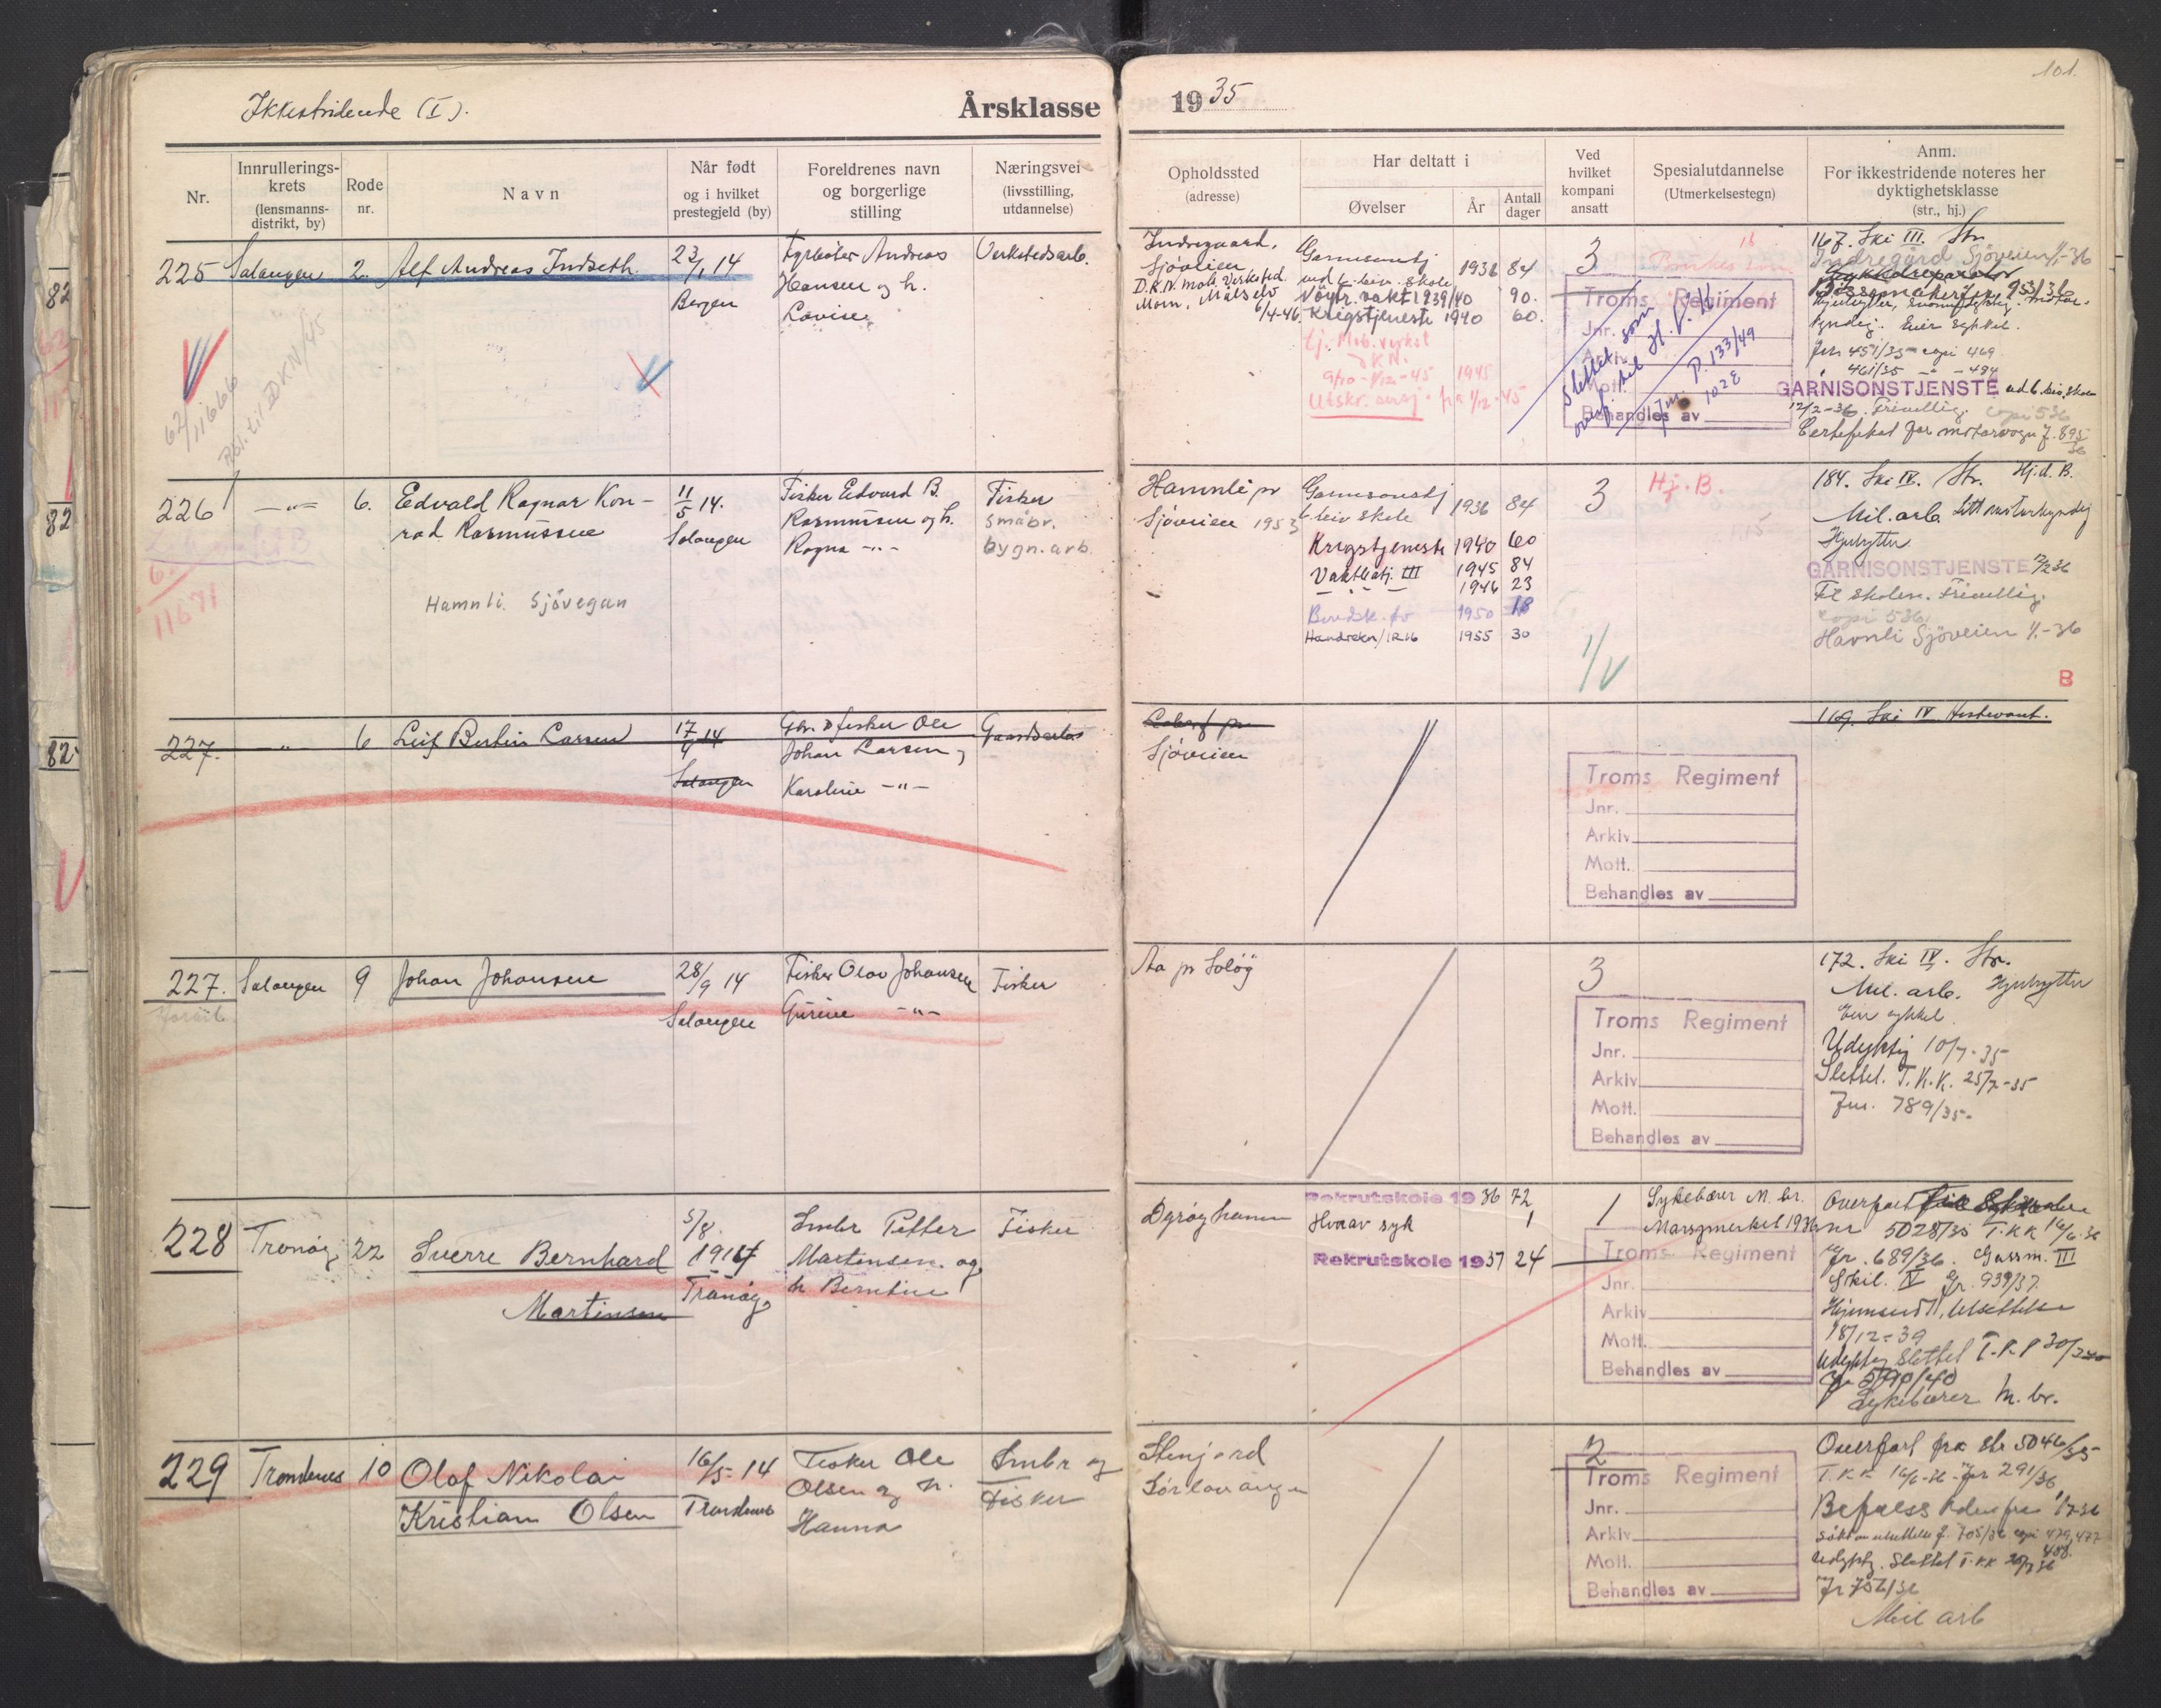 101.
Ikkestridende (I).
Årsklasse 1935
Nr.
Innrullerings-
krets
(lensmanns-
distrikt, by)
Rode
nr.
Navn
Når født
og i hvilket
prestegjeld (by)
Foreldrenes navn
og borgerlige
stilling
Næringsvei
(livsstilling,
utdannelse)
Opholdssted
(adresse)
Har deltatt i
Øvelser
År
Antall
dager
Ved
hvilket
kompani
ansatt
Spesialutdannelse
(Utmerkelsestegn)
Anm.
For ikkestridende noteres her
dyktighetsklasse
(str., hj.)
225 Salangen 2. Alf Andreas Indseth
23/1 14
Bergen
Fyrbøter Andreas
Hansen og h.
Lovise
Verkstedsarb.
Indregaard,
Sjøveien
D.K.N. mob. Verksted
Moen, Målselv 1/4-46
Garnisonstj
ved b. beiv. skole 1936 84
Nøytr. vakt 1939/40 90.
Krigstjeneste 1940 60.
tj. Mob. verkst
DKN.
9/10-1/12-45 1945
Utskr. fra 1/12-45
3
Troms Regiment
Jnr.
Arkiv
Mott.
Behandles av
Slettet som
overf. til H.V.
Jnr. P. 133/49
102 E
167. Ski III. Str.
Indregård Sjøveien 1/1-36
Eier sykkel.
Jnr 451/35 - copi 469
461/35 - " - 484
GARNISONSTJENSTE ved b. beiv. skole
12/2-36. Frivillig. copi 536
Certifikat for motorvogn J. 895/36
62/11666
226 -"- 6. Edvald Ragnar Kon-
rad Rasmussen
11/5 14.
Salangen
Fisker Edvard B.
Rasmussen og h.
Ragna -"-
Fisker
småbr.
bygn.arb.
Hamnli Sjøvegan
11671
Hamnli pr
Sjøveien 1953
Garnisonstj
b. beiv skole 1936 84
Krigstjeneste 1940 60
Vaktbatj. III 1945 84
- " - 1946 23
Beredsk. øv 1950 18
Handrekn/IR16 1955 30
3
Hj. B.
184. Ski IV. Str. Hj.d. B.
Mil. arb. Litt motorkyndig
Hjulrytter
GARNISONSTJENSTE 12/2 36
Til skolen. Frivillig.
copi 536
Havnli Sjøveien 1/1-36
B
227. " 6 Leif Bertin Larsen
17/9 14
Salangen
Gbr. & fisker Ole
Johan Larsen,
Karoline -"-
Gaardsarb.
Sjøveien
Troms Regiment
Jnr.
Arkiv
Mott.
Behandles av
169. Ski IV
227. Salangen 9 Johan Johansen
28/9 14
Salangen
Fisker Olav Johansen
Gurine -"-
Fisker
Aa pr Soløy
3
Troms Regiment
Jnr.
Arkiv
Mott.
Behandles av
172. Ski IV. Str.
Mil. arb. Hjulrytter
Eier sykkel.
Udyktig 10/7-35
Slettet. T.K.K. 25/7-35
Jnr. 789/35.
228 Tranøy 22 Sverre Bernhard
Martinsen
5/8.
1914
Tranøy
Smbr Petter
Martinsen og
h Berntine
Fisker
Dyrøyhamn
Rekrutskole 1936 72
Herav syk 1
Rekrutskole 1937 24
1
Sykebærer M. br.
Marsjmerket 1936
Troms Regiment
Jnr.
Arkiv
Mott.
Behandles av
Overført
nr 5028/35 T.KK 16/6-36
Jr. 689/36. Gassm. III
Skil. IV Jr. 939/37.
Hjemsendt, Utsettelse
18/12-39
Udyktig Slettet
Jr 5190/40
Sykebærer M. br.
229 Trondenes 10 Olaf Nikolai
Kristian Olsen
16/5-14
Trondenes
Fisker Ole
Olsen og h.
Hanna
Smbr og
Fisker
Stenjord
Sørlavangen
2
Troms Regiment
Jnr.
Arkiv
Mott.
Behandles av
Overført fra str 5046/35
T.KK 16/6-36 Jnr 291/36
705/36 copi 479, 477
Udyktig. Slettet T.KK
Jr 756/36
Mil arb